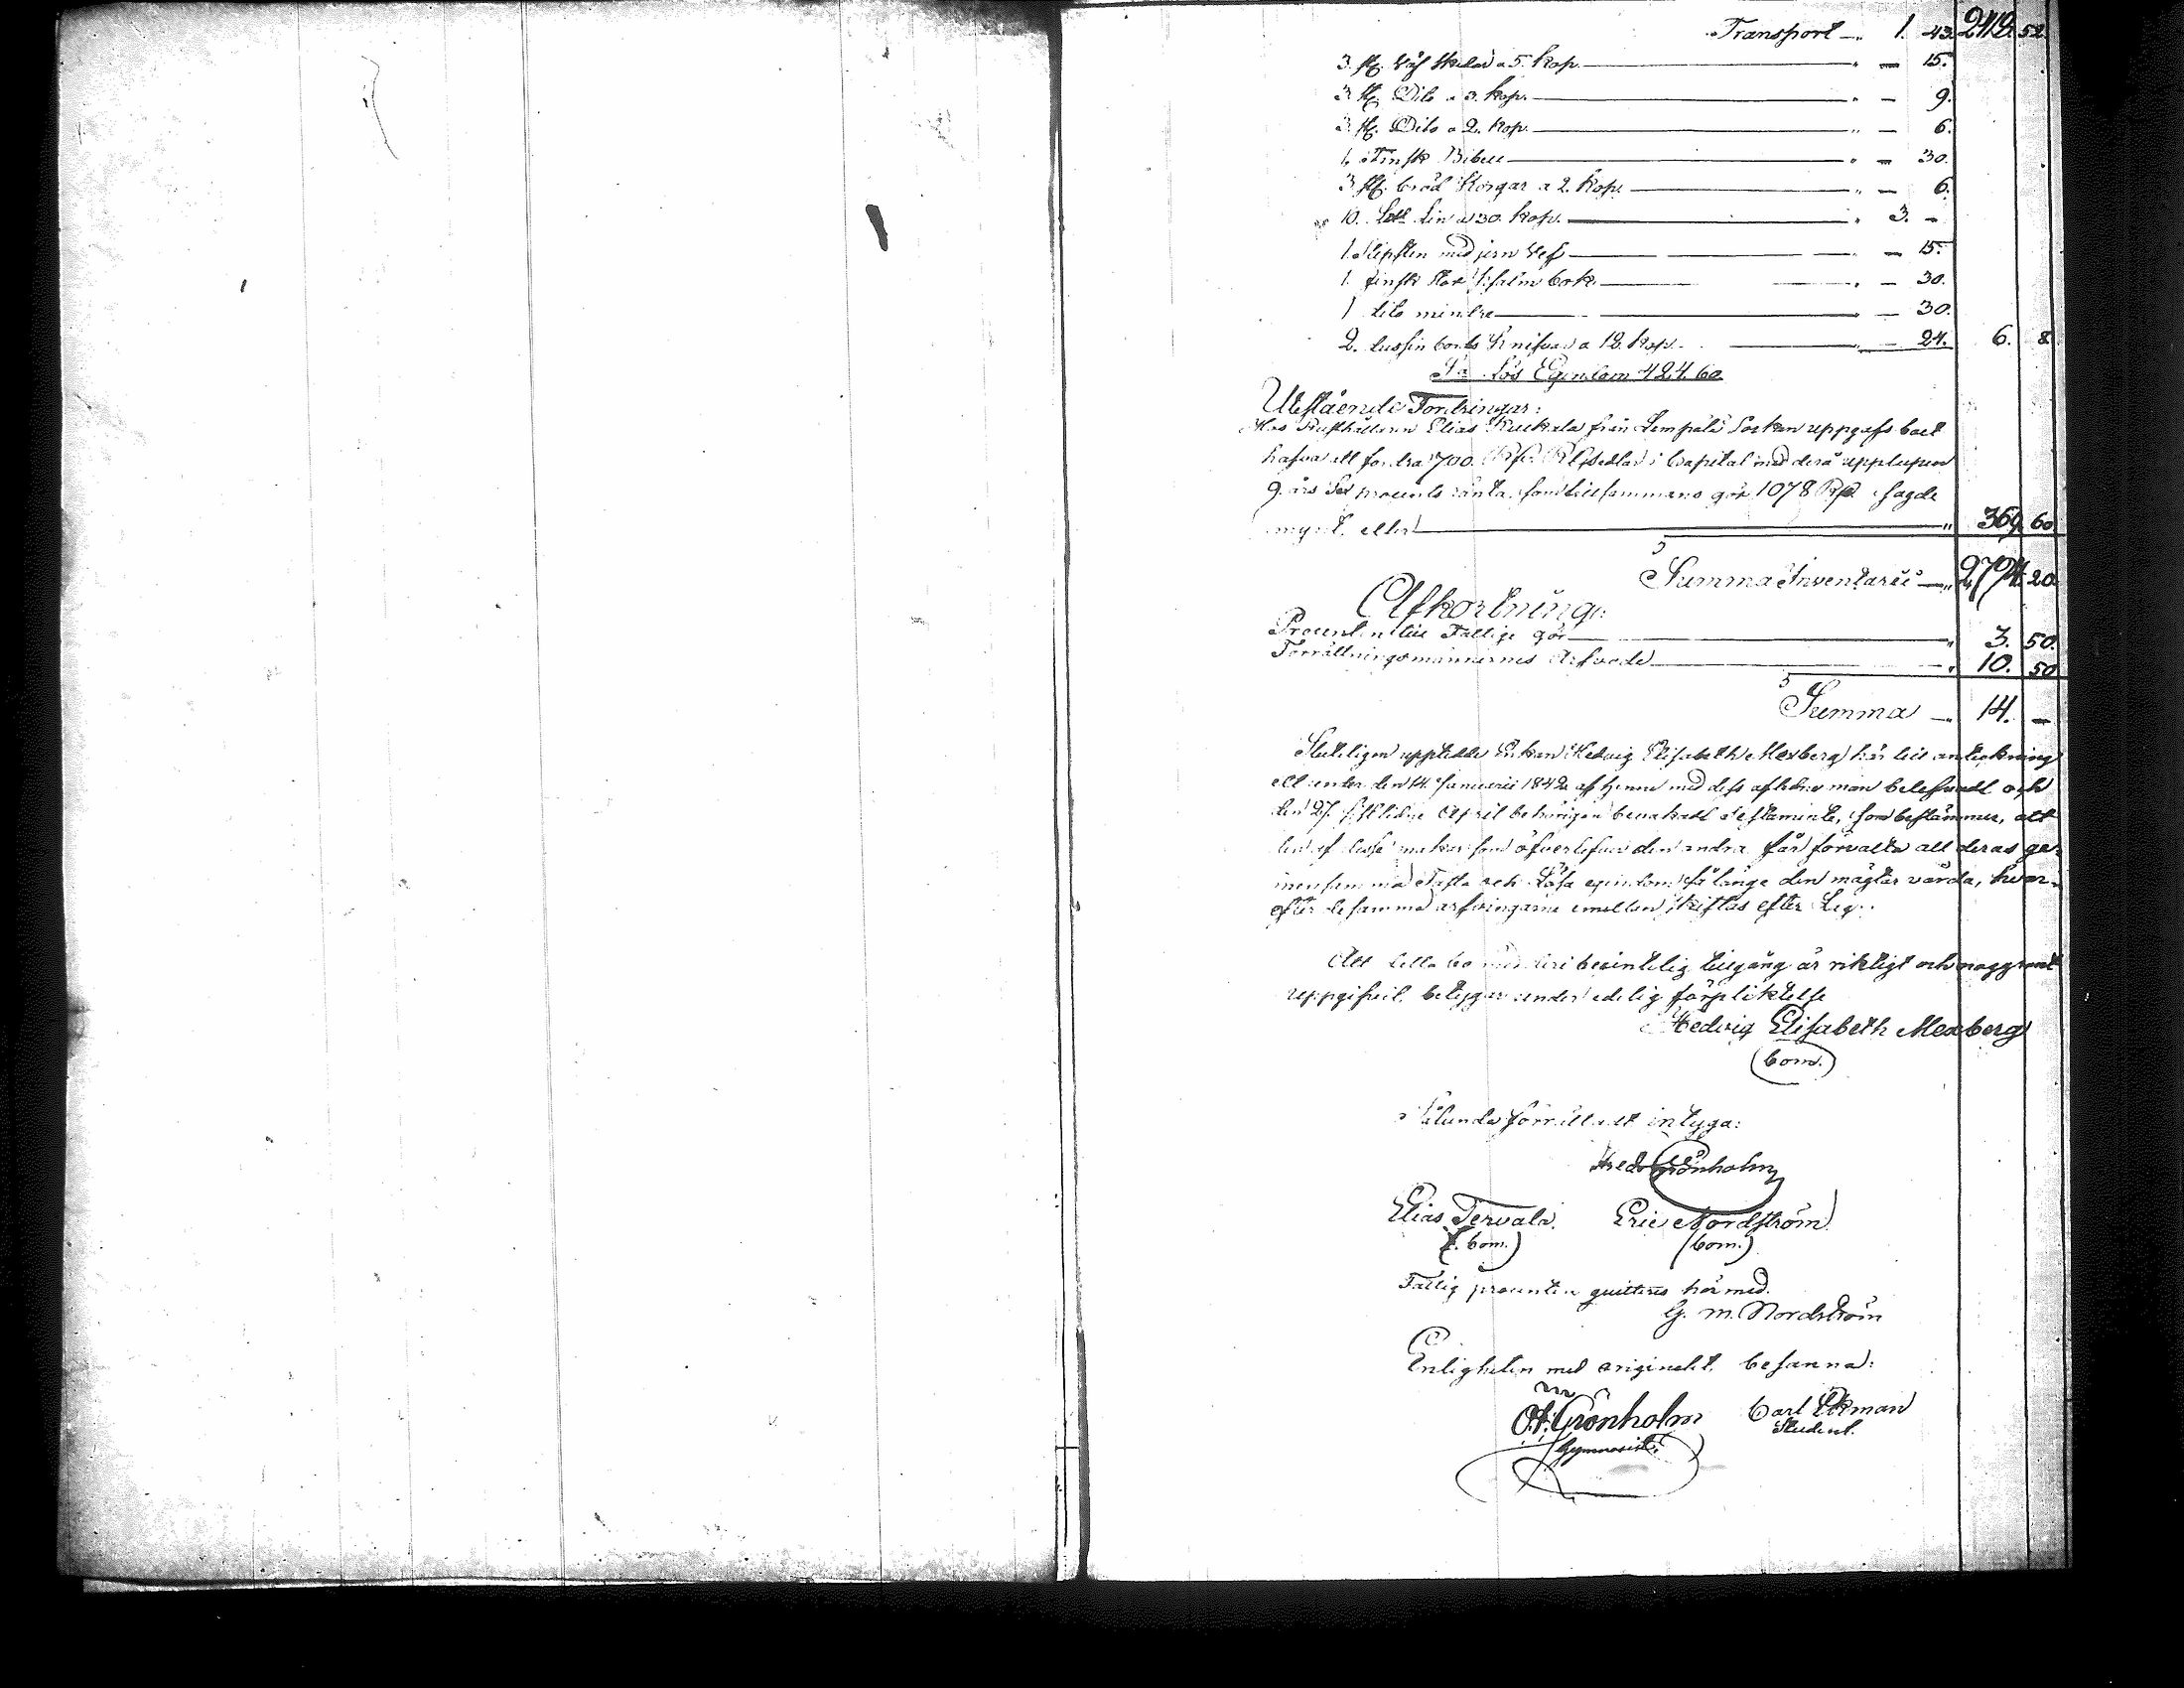 Transport — „ 1. 43. 2412. 52.
3. st. Väf skedar a 5. kop. — „ — 15.
3 st. Dito a 3. kop. — „ — 9.
3. st. Dito a 2. kop. — „ — 6.
1. Finsk Bibel — „ — 30.
3 st. bröd korgar a 2. kop. — „ — 6.
10. Lin a 30. kop. — „ 3. —
1. slipsten med jern vef — „ — 15.
1. finsk stor psalm bok — „ — 30.
1 dito mindre — „ — 30.
2. dussin bords knifvar a 12. kop. — „ — 24. 6. 8
Lös Egendom 424. 60
Utestående Fordringar:
Hos Rusthållaren Elias Kuckala från Lempälä Socken uppgafs boet
hafva att fordra 700. Rub. i Capital med derå upplupen
9. års Sex procents ränta, som tillsammans gör 1078 Rub. sagde
mynt, eller — „ 369. 60
Summa Inventarii — „ 2794. 20.
Afkortning:
Procenten till Fattige gör — „ 3. 50.
Förrättningsmännernes Arfvode — „ 10. 50
Summa — „ 14. —
Sluteligen upptedde Enkan Hedvig Elisabeth Mexberg här till anteckning
ett under den 14. Januarii 1842 af henne med dess aflidne man belefvadt och
den 27. sistlidne April behörigen bevakadt testamente, som bestämmer, att
den af dessa makar som öfverlefver den andra får förvalta all deras ge-
mensamma Fasta och Lösa egendom så länge den mägtar vårda, hvar-
efter desamma arfvingarne emellan skiftas efter Lag.
Att detta bo befintelig tillgång är riktigt och noggrant
uppgifvit, betygar under edelig förpliktelse
Hedvig Elisabeth Mexberg
(bom.)
Sålunda förrättadt intyga:
Fredr Grönholm
Elias Tervala. Eric Nordström
(bom.) (bom.)
Fattig procenten quitteras härmed.
G. M. Nordström
Enligheten med originalet, besanna:
O. F. Grönholm Carl Ekman
Gymnasist. Student.